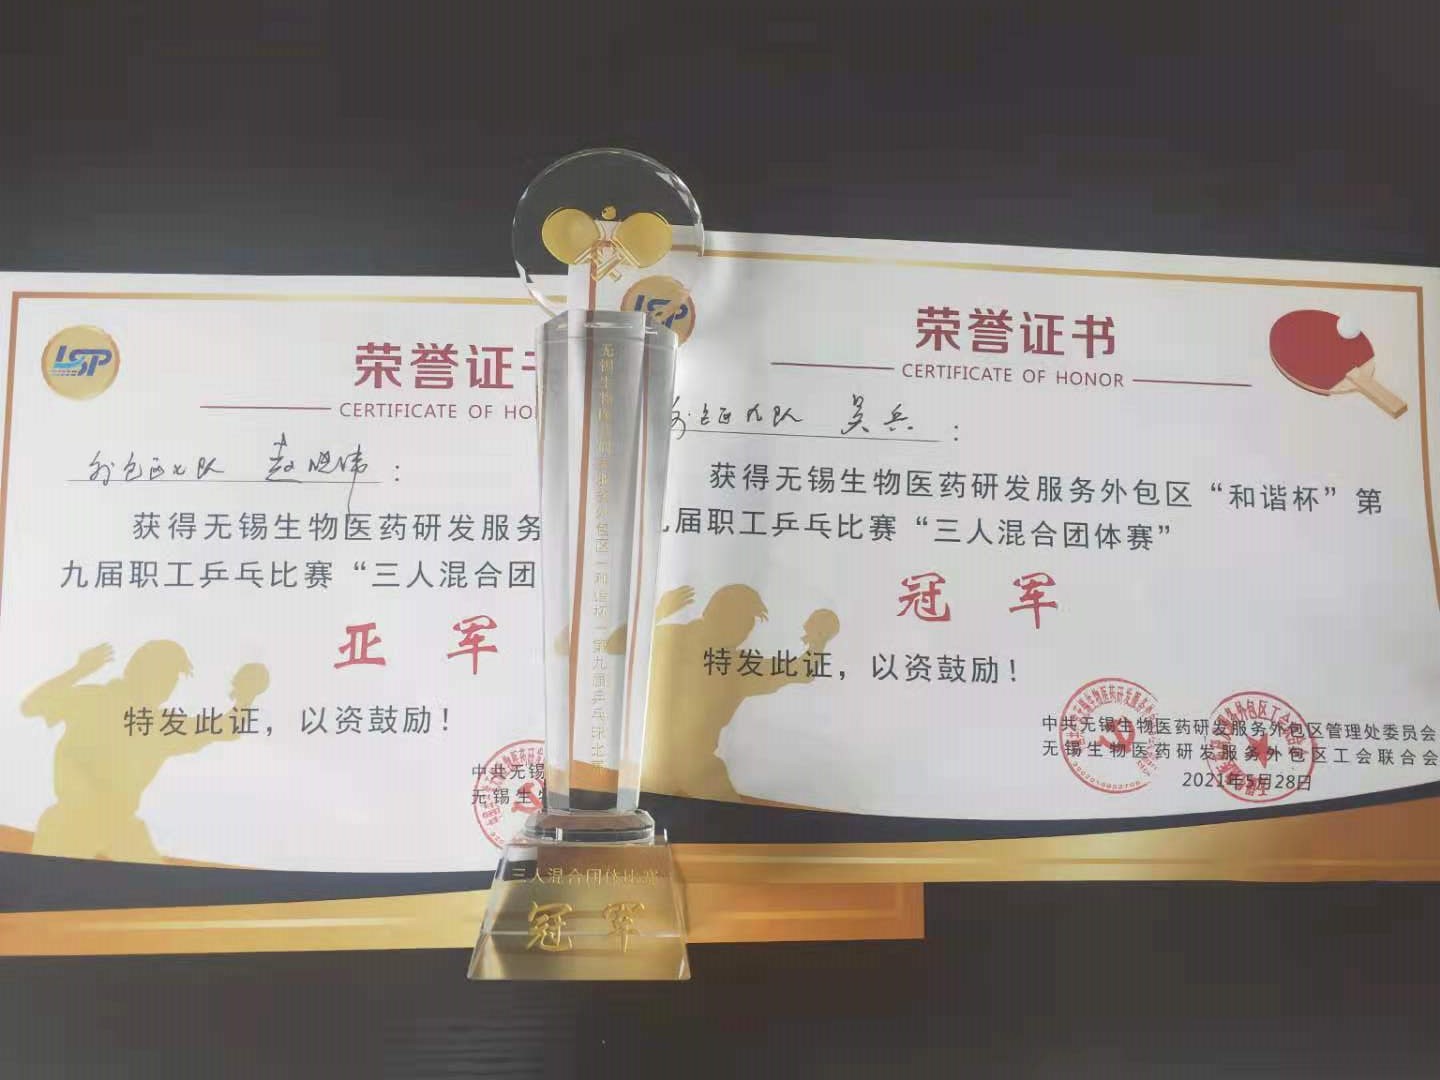 LSP
荣誉证
CERTIFICATE OF HO
外包区七队 赵晓伟：
获得无锡生物医药研发服务
九届职工乒乓比赛“三人混合团
亚 军
特发此证，以资鼓励！
中共无锡
无锡生
LSP
荣誉证书
CERTIFICATE OF HONOR
外包区九队 吴兵：
获得无锡生物医药研发服务外包区“和谐杯”第
九届职工乒乓比赛“三人混合团体赛”
冠 军
特发此证，以资鼓励！
中共无锡生物医药研发服务外包区管理处委员会
无锡生物医药研发服务外包区工会联合会
2021年5月28日
三人混合团体比赛
冠 军